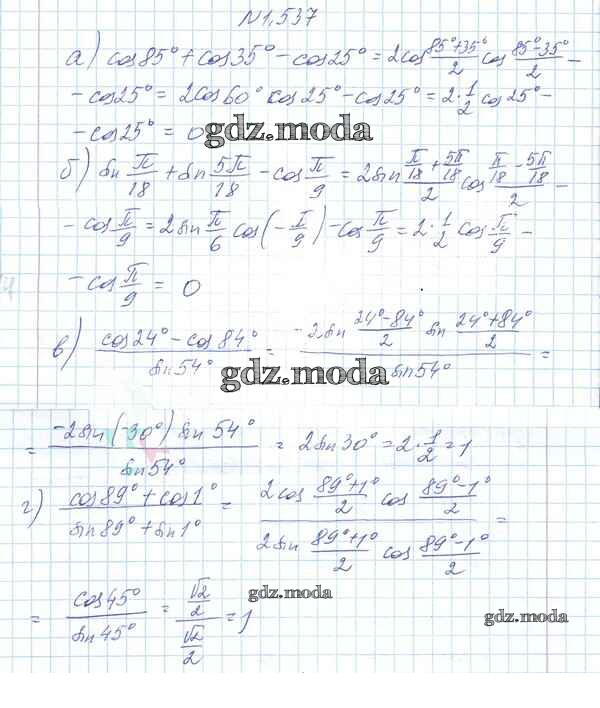 N 1,537
а) cos85° + cos35° - cos25° = 2cos (85°+35°)/2 cos (85°-35°)/2 -
- cos25° = 2cos60° cos25° - cos25° = 2·1/2 cos25° -
- cos25° = 0
gdz.moda
б) sin π/18 + sin 5π/18 - cos π/9 = 2sin (π/18 + 5π/18)/2 cos (π/18 - 5π/18)/2 -
- cos π/9 = 2sin π/6 cos(-π/9) - cos π/9 = 2·1/2 cos π/9 -
- cos π/9 = 0
в) (cos24° - cos84°)/sin54° = (-2sin (24°-84°)/2 sin (24°+84°)/2)/sin54° =
gdz.moda
= (-2sin(-30°) sin54°)/sin54° = 2sin30° = 2·1/2 = 1
г) (cos89° + cos1°)/(sin89° + sin1°) = (2cos (89°+1°)/2 cos (89°-1°)/2)/(2sin (89°+1°)/2 cos (89°-1°)/2) =
gdz.moda
= cos45°/sin45° = (√2/2)/(√2/2) = 1
gdz.moda
gdz.moda